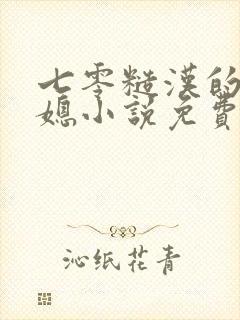 七零糙漢的
媳小說免費
沁纸花青